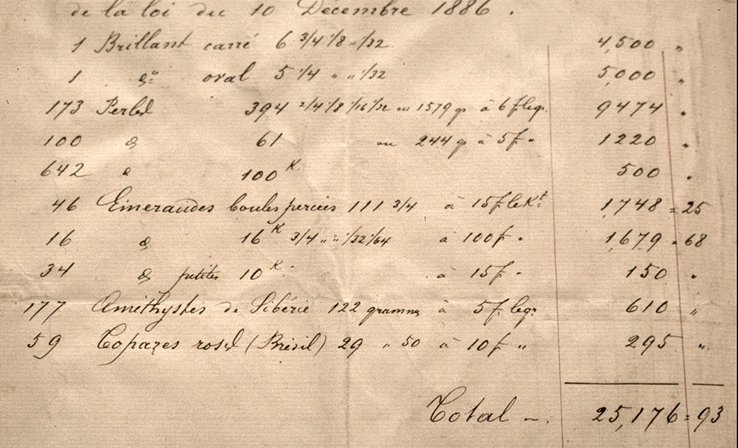 de la loi du 10 Decembre 1886.
1 Brillant carré 6 3/4 1/8 " 1/32 4,500 "
1 do oval 5 1/4 " " 1/32 5,000 "
173 Perles 394 2/4 1/8 1/16 1/32 ou 1579 gr à 6 f le gr. 9474 "
100 do 61 ou 244 gr à 5 f " 1220 "
642 " 100 K. 500 "
46 Emeraudes boules percées 111 3/4 à 15 f le Kt. 1,748 = 25
16 do 16 K 3/4 " " 1/32 1/64 à 100 f " 1,679 " 68
34 do petites 10 K. à 15 f. 150 "
177 Améthystes de Sibérie 122 grammes à 5 f. le gr 610 "
59 Topazes roses (Brésil) 29 " 50 à 10 f " 295 "
Total — 25,176 = 93